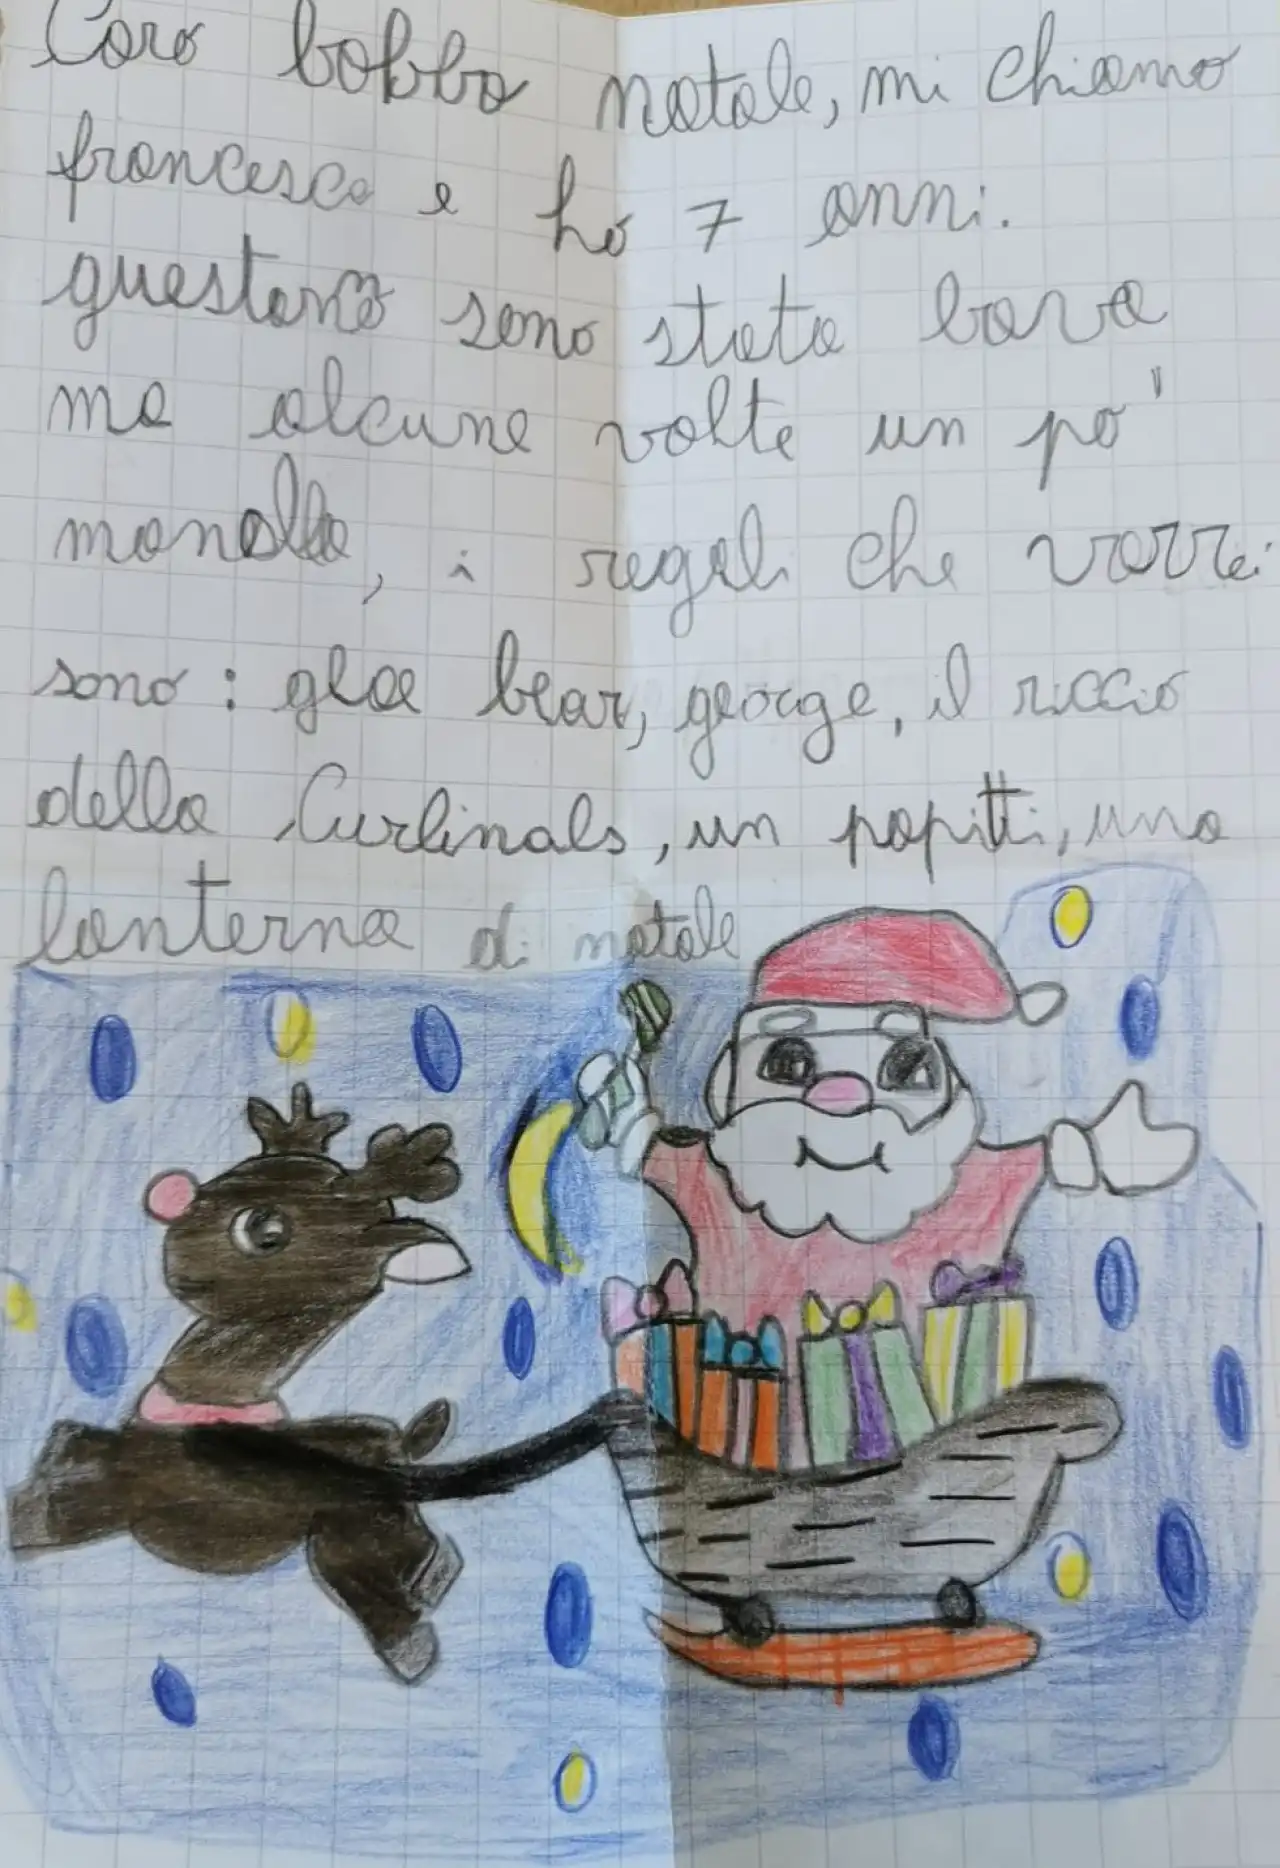 Caro babbo natale, mi chiamo
francesca e ho 7 anni.
questano sono stata bava
ma alcune volte un po'
monella, i regali che vorrei
sono: gloe bear, george, il riccio
della Curlinals, un popitti, una
lanterna di natale